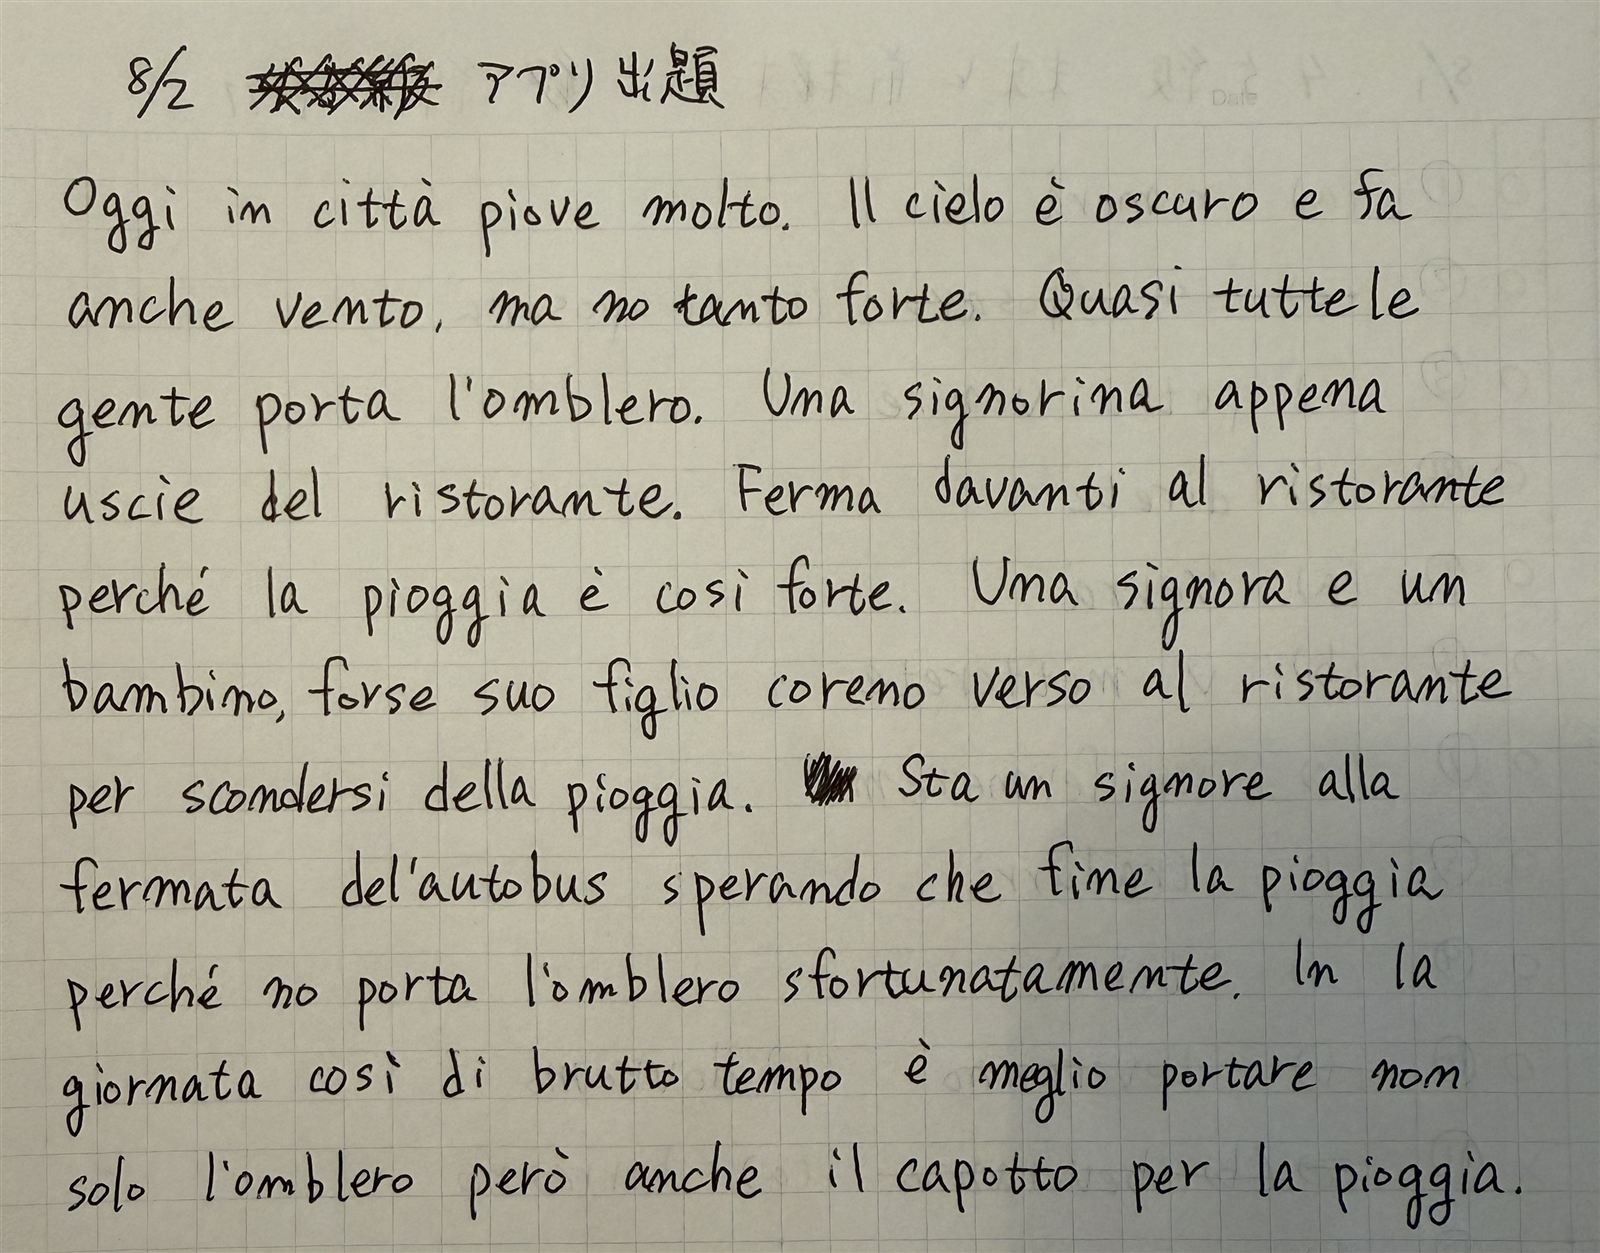 8/2 アプリ出題
Oggi in città piove molto. Il cielo è oscuro e fa
anche vento, ma no tanto forte. Quasi tutte le
gente porta l'omblero. Una signorina appena
uscie del ristorante. Ferma davanti al ristorante
perché la pioggia è cosi forte. Una signora e un
bambino, forse suo figlio coreno verso al ristorante
per scondersi della pioggia. Sta un signore alla
fermata del'autobus sperando che fine la pioggia
perché no porta l'omblero sfortunatamente. In la
giornata così di brutto tempo è meglio portare non
solo l'omblero però anche il capotto per la pioggia.